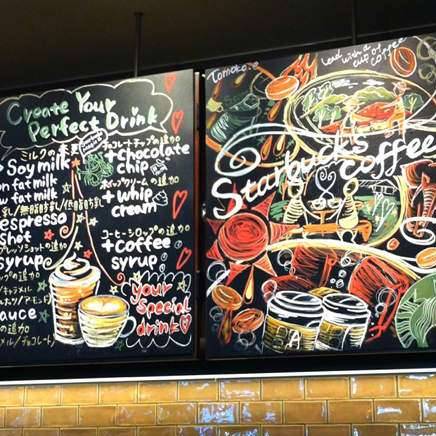 Create Your
Perfect Drink
ミルクの変更
Soy milk
fat milk
fat milk
無脂肪乳/低脂肪乳
espresso
shot
syrup
sauce
チョコレートチップの追加
+chocolate
chip
ホイップクリームの追加
+whip
cream
コーヒーシロップの追加
+coffee
syrup
your
special
drink
Tomoko.t
Lead with a
cup of
coffee
Starbucks
coffee